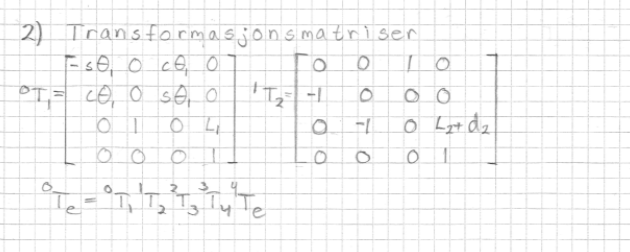 2) Transformasjonsmatriser
⁰T₁ = [-sθ₁ 0 cθ₁ 0; cθ₁ 0 sθ₁ 0; 0 1 0 L₁; 0 0 0 1] ¹T₂ = [0 0 1 0; -1 0 0 0; 0 -1 0 L₂+d₂; 0 0 0 1]
⁰Tₑ = ⁰T₁ ¹T₂ ²T₃ ³T₄ ⁴Tₑ